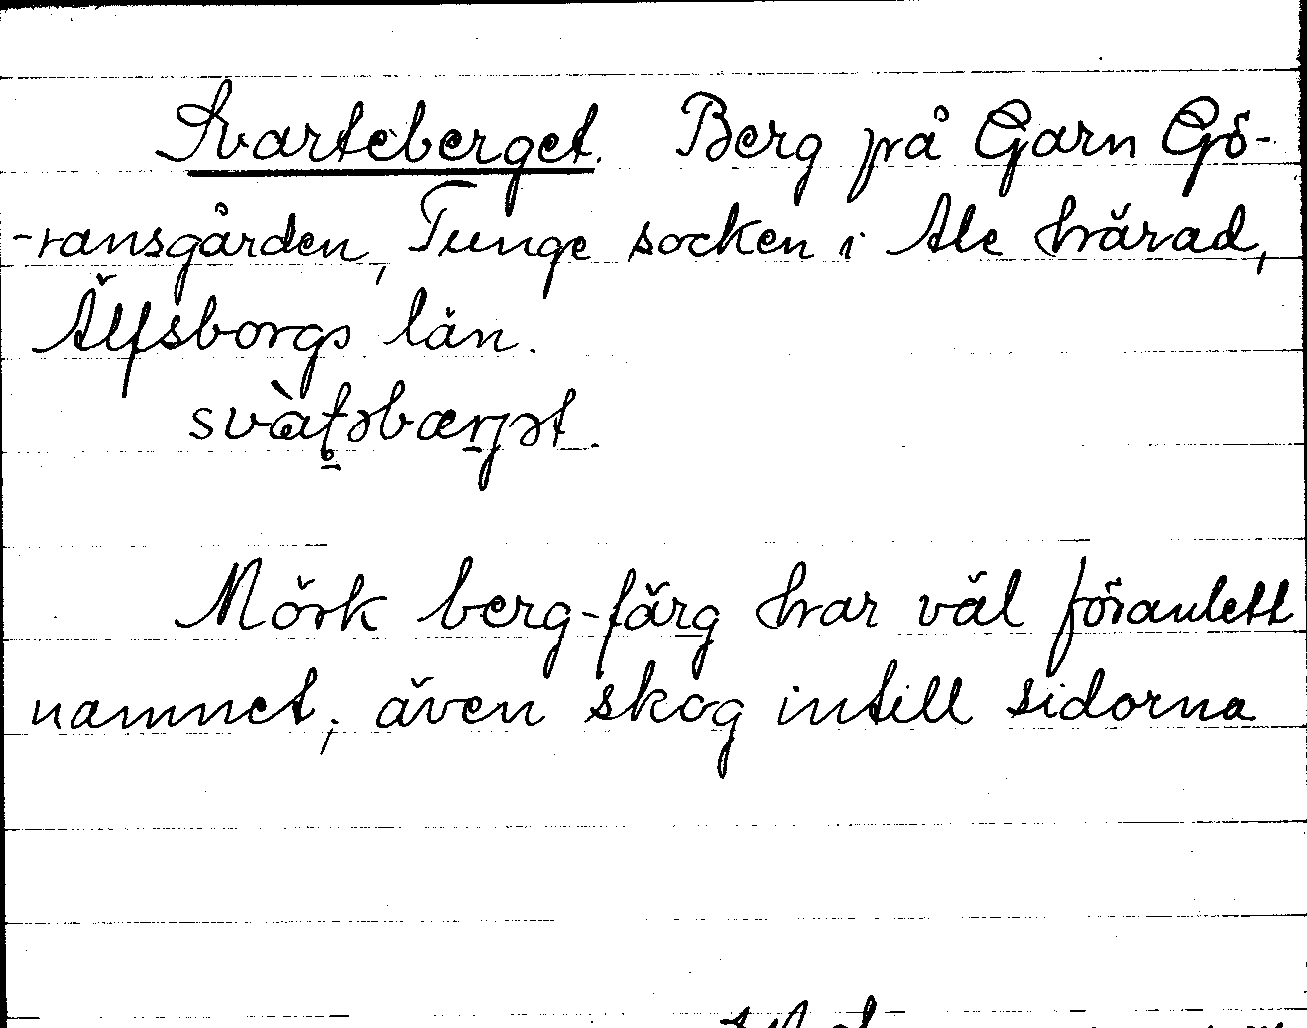 Svarteberget. Berg på Garn Gö-
-ransgården, Tunge socken i Ale härad,
Älfsborgs län.
svàt̠əbær̠jət.
Mörk berg-färg har väl föranlett
namnet, även skog intill sidorna